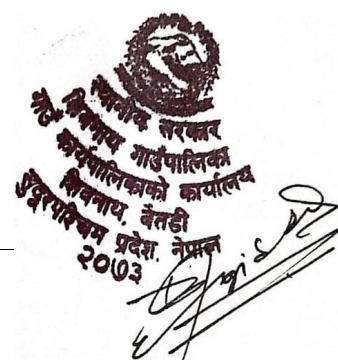 स्थानीय सरकार
शिवनाथ गाउँपालिका
गाउँ कार्यपालिकाको कार्यालय
शिवनाथ बैतडी
सुदूरपश्चिम प्रदेश, नेपाल
२०७३